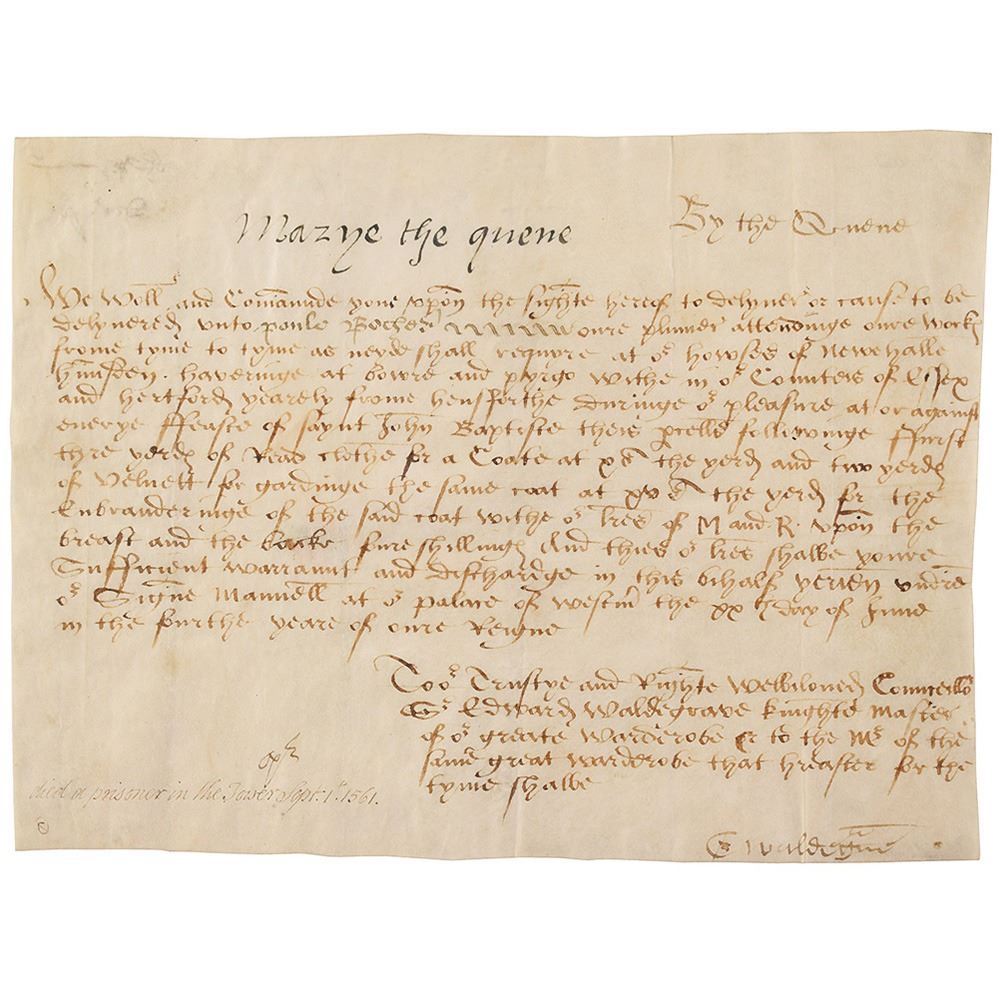 Marye the quene
By the Quene
We woll and Comaunde youe vpon the sighte hereof to delyuer or cause to be
delyuered vnto poulo Bocher oure plumer attendinge oure work
frome tyme to tyme as neyde shall requyre at or howses of Newehalle
hunsden . haveringe at bowre and pyrgo withe in or Counties of Essex
and hertford yearely frome hensforthe duringe or pleasure at or against
euerye ffeaste of saynt John Baptiste theis pcells followinge ffurst
thre yerd of Read clothe for a Coate at the yerd and two yerd
of veluett for gardinge the same coat at xvs the yerd for the
Enbrauderinge of the said coat withe or lres of M and R . vpon the
breast and the backe foure shilling And thies or lres shalbe youre
Sufficient warraunt and dischardge in this bihalf yeuen vndre
or Signe Manuell at or palace of westm the xxth day of June
in the fourthe yeare of oure Reigne
To or Trustye and Righte welbiloued Councello
Sr Edward Waldegrave knighte Master
of or greate warderobe or to the Mr of the
same great warderobe that hreafter for the
tyme shalbe
died a prisoner in the Tower Sept. 1st. 1561.
E Waldegraue